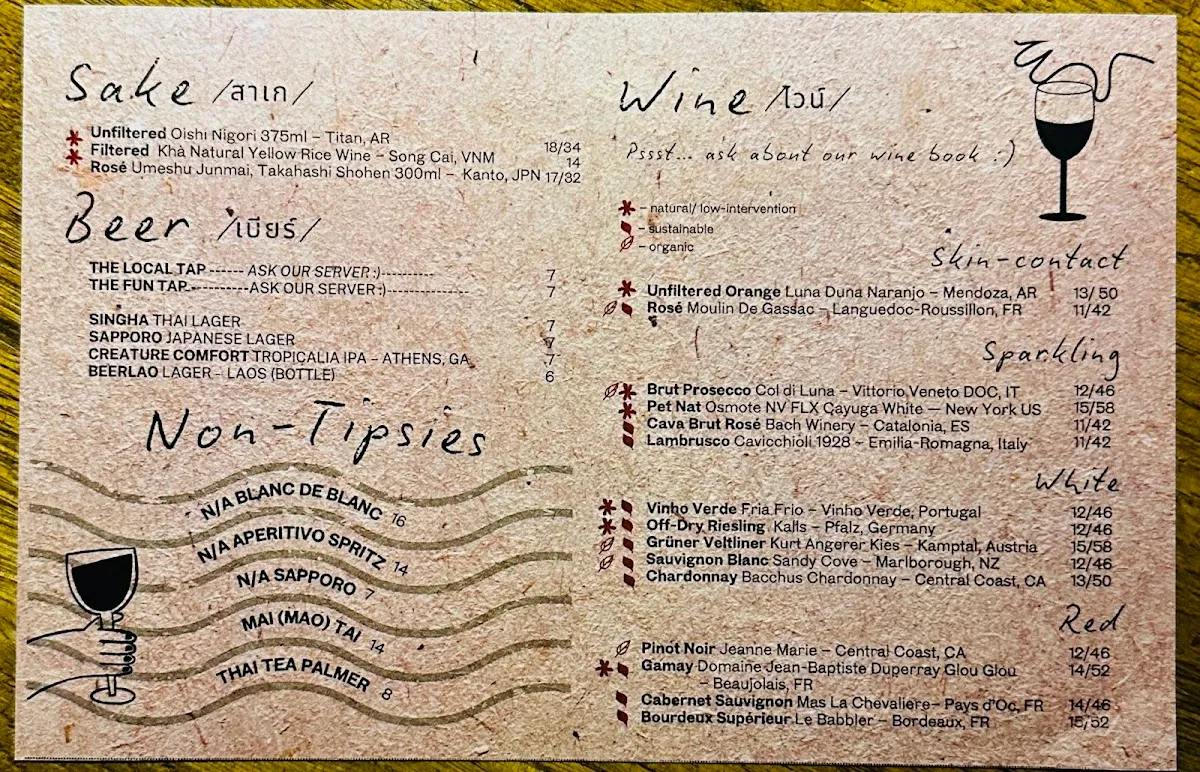 Sake /สาเก/
Unfiltered Oishi Nigori 375ml – Titan, AR 18/34
Filtered Khà Natural Yellow Rice Wine – Song Cai, VNM 14
Rosé Umeshu Junmai, Takahashi Shohen 300ml – Kanto, JPN 17/32
Beer /เบียร์/
THE LOCAL TAP ------ ASK OUR SERVER :)---------- 7
THE FUN TAP----------ASK OUR SERVER :)--------------- 7
SINGHA THAI LAGER 7
SAPPORO JAPANESE LAGER 7
CREATURE COMFORT TROPICALIA IPA – ATHENS, GA 7
BEERLAO LAGER – LAOS (BOTTLE) 6
Non-Tipsies
N/A BLANC DE BLANC 16
N/A APERITIVO SPRITZ 14
N/A SAPPORO 7
MAI (MAO) TAI 14
THAI TEA PALMER 8
Wine /ไวน์/
Pssst... ask about our wine book :)
– natural/ low-intervention
– sustainable
– organic
Skin-contact
Unfiltered Orange Luna Duna Naranjo – Mendoza, AR 13/ 50
Rosé Moulin De Gassac – Languedoc-Roussillon, FR 11/42
Sparkling
Brut Prosecco Col di Luna – Vittorio Veneto DOC, IT 12/46
Pet Nat Osmote NV FLX Cayuga White — New York US 15/58
Cava Brut Rosé Bach Winery – Catalonia, ES 11/42
Lambrusco Cavicchioli 1928 – Emilia-Romagna, Italy 11/42
White
Vinho Verde Fria Frio – Vinho Verde, Portugal 12/46
Off-Dry Riesling Kalls – Pfalz, Germany 12/46
Grüner Veltliner Kurt Angerer Kies – Kamptal, Austria 15/58
Sauvignon Blanc Sandy Cove – Marlborough, NZ 12/46
Chardonnay Bacchus Chardonnay – Central Coast, CA 13/50
Red
Pinot Noir Jeanne Marie – Central Coast, CA 12/46
Gamay Domaine Jean-Baptiste Duperray Glou Glou 14/52
– Beaujolais, FR
Cabernet Sauvignon Mas La Chevaliere– Pays d'Oc, FR 14/46
Bourdeux Supérieur Le Babbler – Bordeaux, FR 15/52